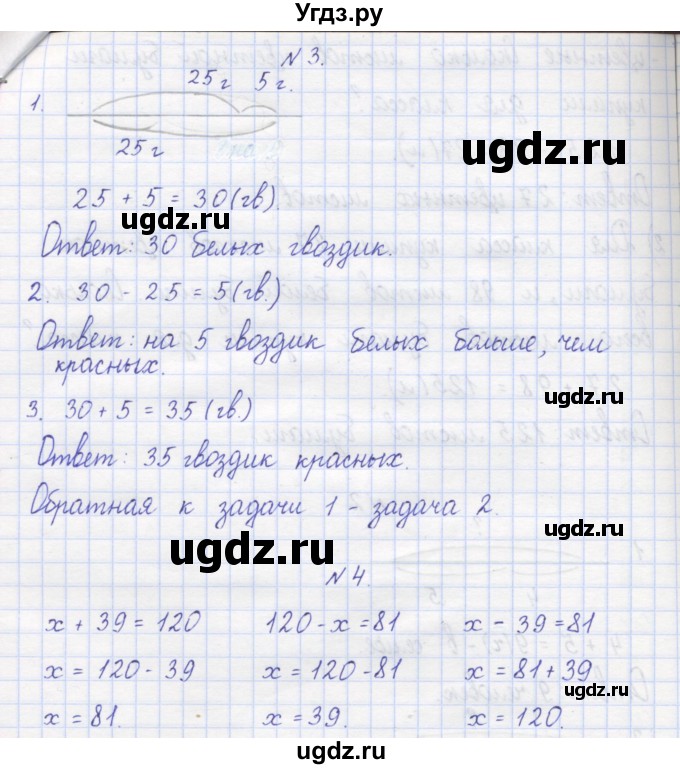 Угдз.ру
N 3.
25 г 5 г.
1.
25 г
25 + 5 = 30 (гв).
Ответ: 30 белых гвоздик.
2. 30 - 25 = 5 (гв.)
Ответ: на 5 гвоздик белых больше, чем
красных.
3. 30 + 5 = 35 (гв.)
Ответ: 35 гвоздик красных.
Обратная к задачи 1 - задача 2.
N 4.
x + 39 = 120 120 - x = 81 x - 39 = 81
x = 120 - 39 x = 120 - 81 x = 81 + 39
x = 81. x = 39. x = 120.
ugdz.ru
ugdz.ru
ugdz.ru
ugdz.ru
ugdz.ru
ugdz.ru
ugdz.ru
ugdz.ru